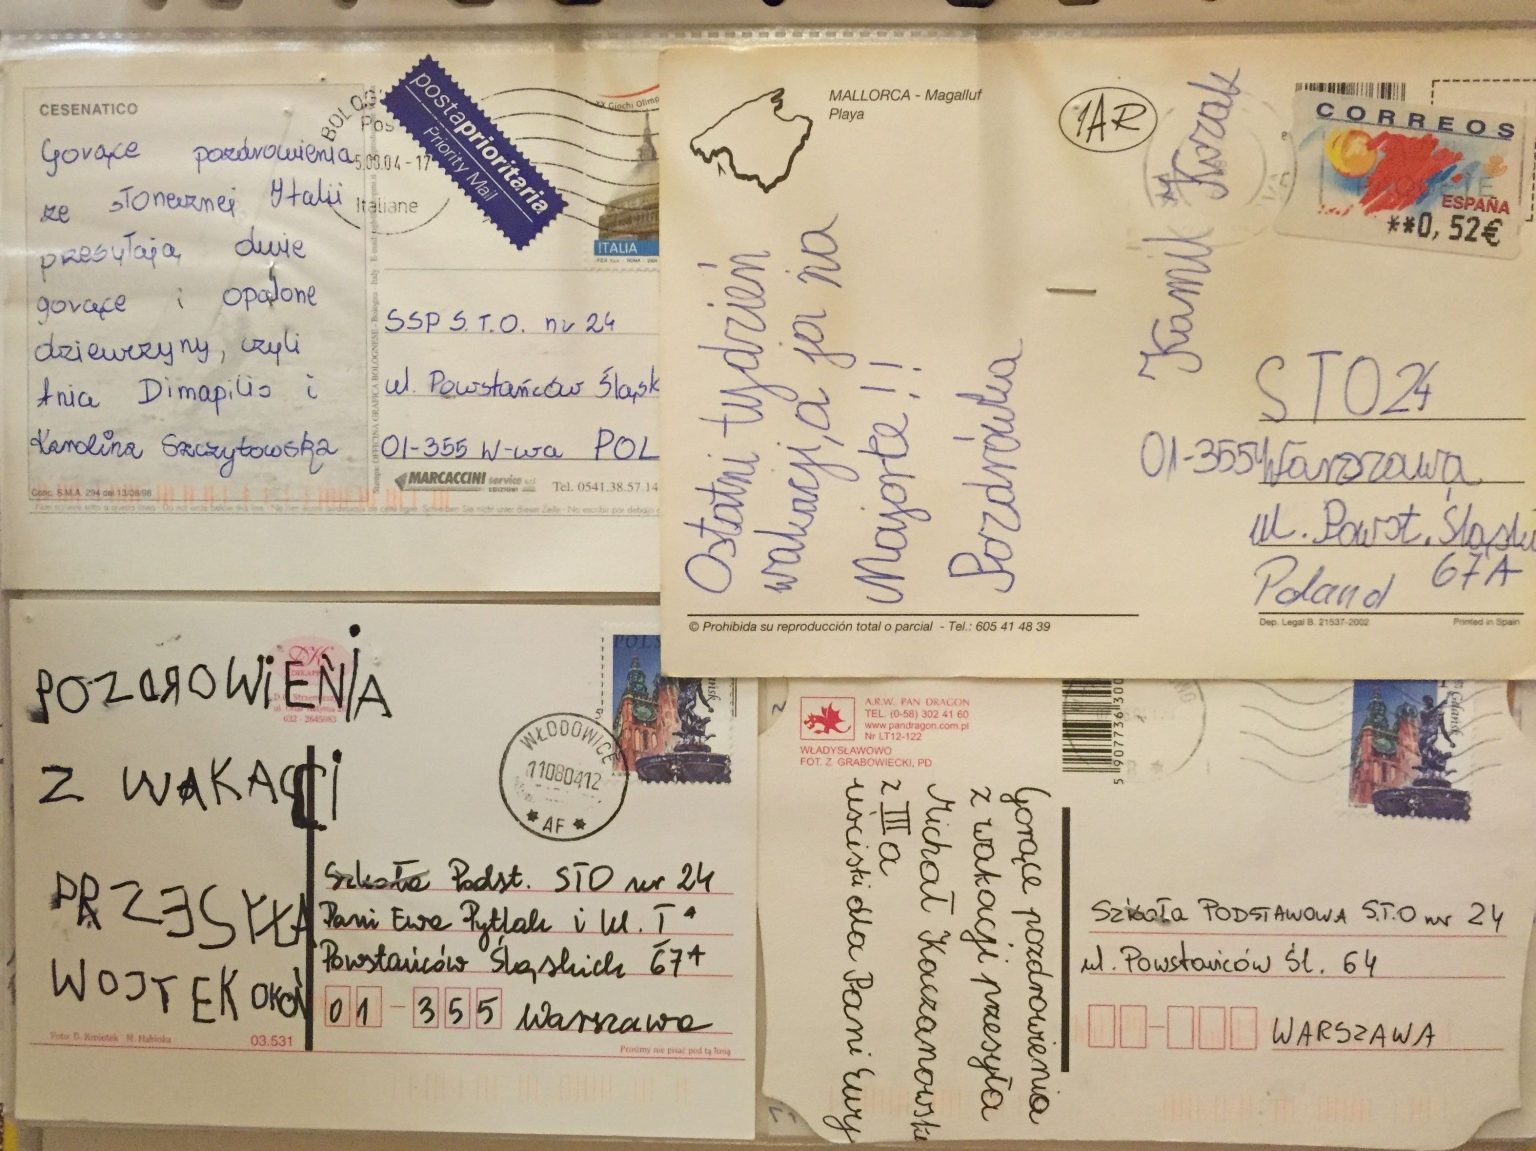 CESENATICO
Gorące pozdrowienia
ze słonecznej Italii
przesyłają dwie
gorące i opalone
dziewczyny, czyli
Ania Dimapilis i
Karolina Szczytowska
Conc. S.M.A. 294 del 13/08/98
BOLOG
Pos
5.08.04-17
Italiane
postaprioritaria
Priority Mail
XX Giochi Olimp
ITALIA
SSP S.T.O. nr 24
ul. Powstańców Śląsk
01-355 W-wa POL
MARCACCINI service
EDIZIONI
Tel. 0541.38.57.14
Stampa: OFFICINA GRAFICA BOLOGNESE - Bologna - Italy
MALLORCA - Magalluf
Playa
1AR
Ostatni tydzień
wakacji, a ja na
Majorte!!
Pozdrówka
Kamik Kozak
CORREOS
ESPAÑA
**0,52€
STO 24
01-355 Warszawa
ul. Powst. Śląski
67A
Poland
© Prohibida su reproducción total o parcial - Tel.: 605 41 48 39
Dep. Legal B. 21537-2002
Printed in Spain
POZDROWIENIA
Z WAKACJI
PRZESYŁA
WOJTEK OKOŃ
DK
032 - 2645983
POLS
WŁODOWICE
11080412
* AF *
Szkoła Podst. STO nr 24
Pani Ewa Pytlak i kl. I a
Powstańców Śląskich 67A
01-355 Warszawa
03.531
Prosimy nie pisać pod tą linią
A.R.W. PAN DRAGON
TEL. (0-58) 302 41 60
www.pandragon.com.pl
Nr LT12-122
WŁADYSŁAWOWO
FOT. Z. GRABOWIECKI, PD
5 907736 300
Gdańsk
Gorące pozdrowienia
z wakacji przesyła
Michał Kaczanowski
z III a
uściski dla Pani Ewy
SZKOŁA PODSTAWOWA S.T.O nr 24
ul. Powstańców Śl. 64
WARSZAWA